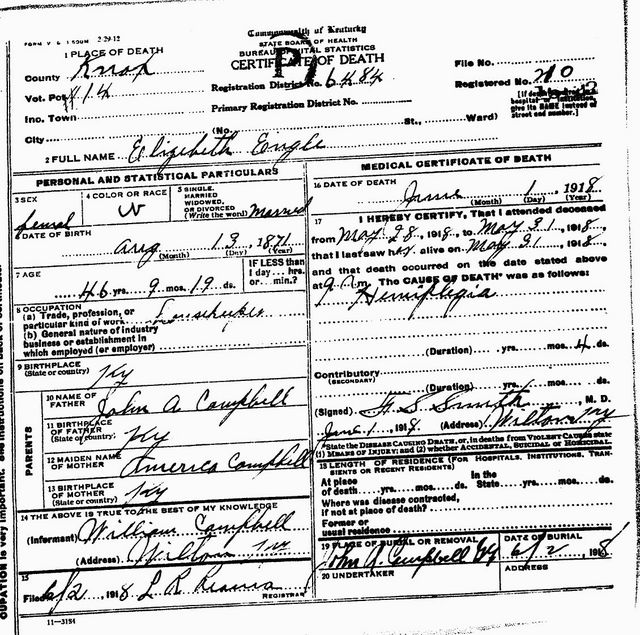 FORM V S 1 50M 2-29-12
Commonwealth of Kentucky
STATE BOARD OF HEALTH
BUREAU OF VITAL STATISTICS
CERTIFICATE OF DEATH
1 PLACE OF DEATH
County Knox
Vot. Pct #14
Inc. Town
City
Registration District No. 6484
Primary Registration District No.
(No. St., Ward)
File No.
Registered No. 210
[If death occurred in a hospital or institution, give its NAME instead of street and number.]
2 FULL NAME Elizabeth Engle
PERSONAL AND STATISTICAL PARTICULARS
3 SEX
femal
4 COLOR OR RACE
W
5 SINGLE, MARRIED WIDOWED, OR DIVORCED (Write the word) Married
6 DATE OF BIRTH
Aug 13, 1871
(Month) (Day) (Year)
7 AGE
46 yrs. 9 mos. 19 ds.
IF LESS than 1 day... hrs. or... min.?
8 OCCUPATION
(a) Trade, profession, or particular kind of work
(b) General nature of industry business or establishment in which employed (or employer)
9 BIRTHPLACE
(State or country) Ky
PARENTS
10 NAME OF FATHER John A Campbell
11 BIRTHPLACE OF FATHER (State or country) Ky
12 MAIDEN NAME OF MOTHER America Campbell
13 BIRTHPLACE OF MOTHER (State or country) Ky
14 THE ABOVE IS TRUE TO THE BEST OF MY KNOWLEDGE
(Informant) William Campbell
(Address) Wilton Ky
15
Filed 6/2, 1918 L R
REGISTRAR
11-3184
MEDICAL CERTIFICATE OF DEATH
16 DATE OF DEATH
June 1, 1918
(Month) (Day) (Year)
17 I HEREBY CERTIFY, That I attended deceased
from May 28, 1918, to May 31, 1918,
that I last saw her alive on May 31, 1918,
and that death occurred on the date stated above
at 9 m. The CAUSE OF DEATH* was as follows:
Hemiplegia
(Duration) yrs. mos. 4 ds.
Contributory
(SECONDARY)
(Duration) yrs. mos. ds.
(Signed) H. S. Smith, M. D.
June 1, 1918 (Address) Wilton Ky
*State the DISEASE CAUSING DEATH, or, in deaths from VIOLENT CAUSES state (1) MEANS OF INJURY; and (2) whether ACCIDENTAL, SUICIDAL or HOMICIDAL.
18 LENGTH OF RESIDENCE (FOR HOSPITALS, INSTITUTIONS, TRANSIENTS OR RECENT RESIDENTS)
At place of death yrs. mos. ds. In the State yrs. mos. ds.
Where was disease contracted, if not at place of death?
Former or usual residence
19 PLACE OF BURIAL OR REMOVAL
Campbell
DATE OF BURIAL
6/2 1918
20 UNDERTAKER
ADDRESS